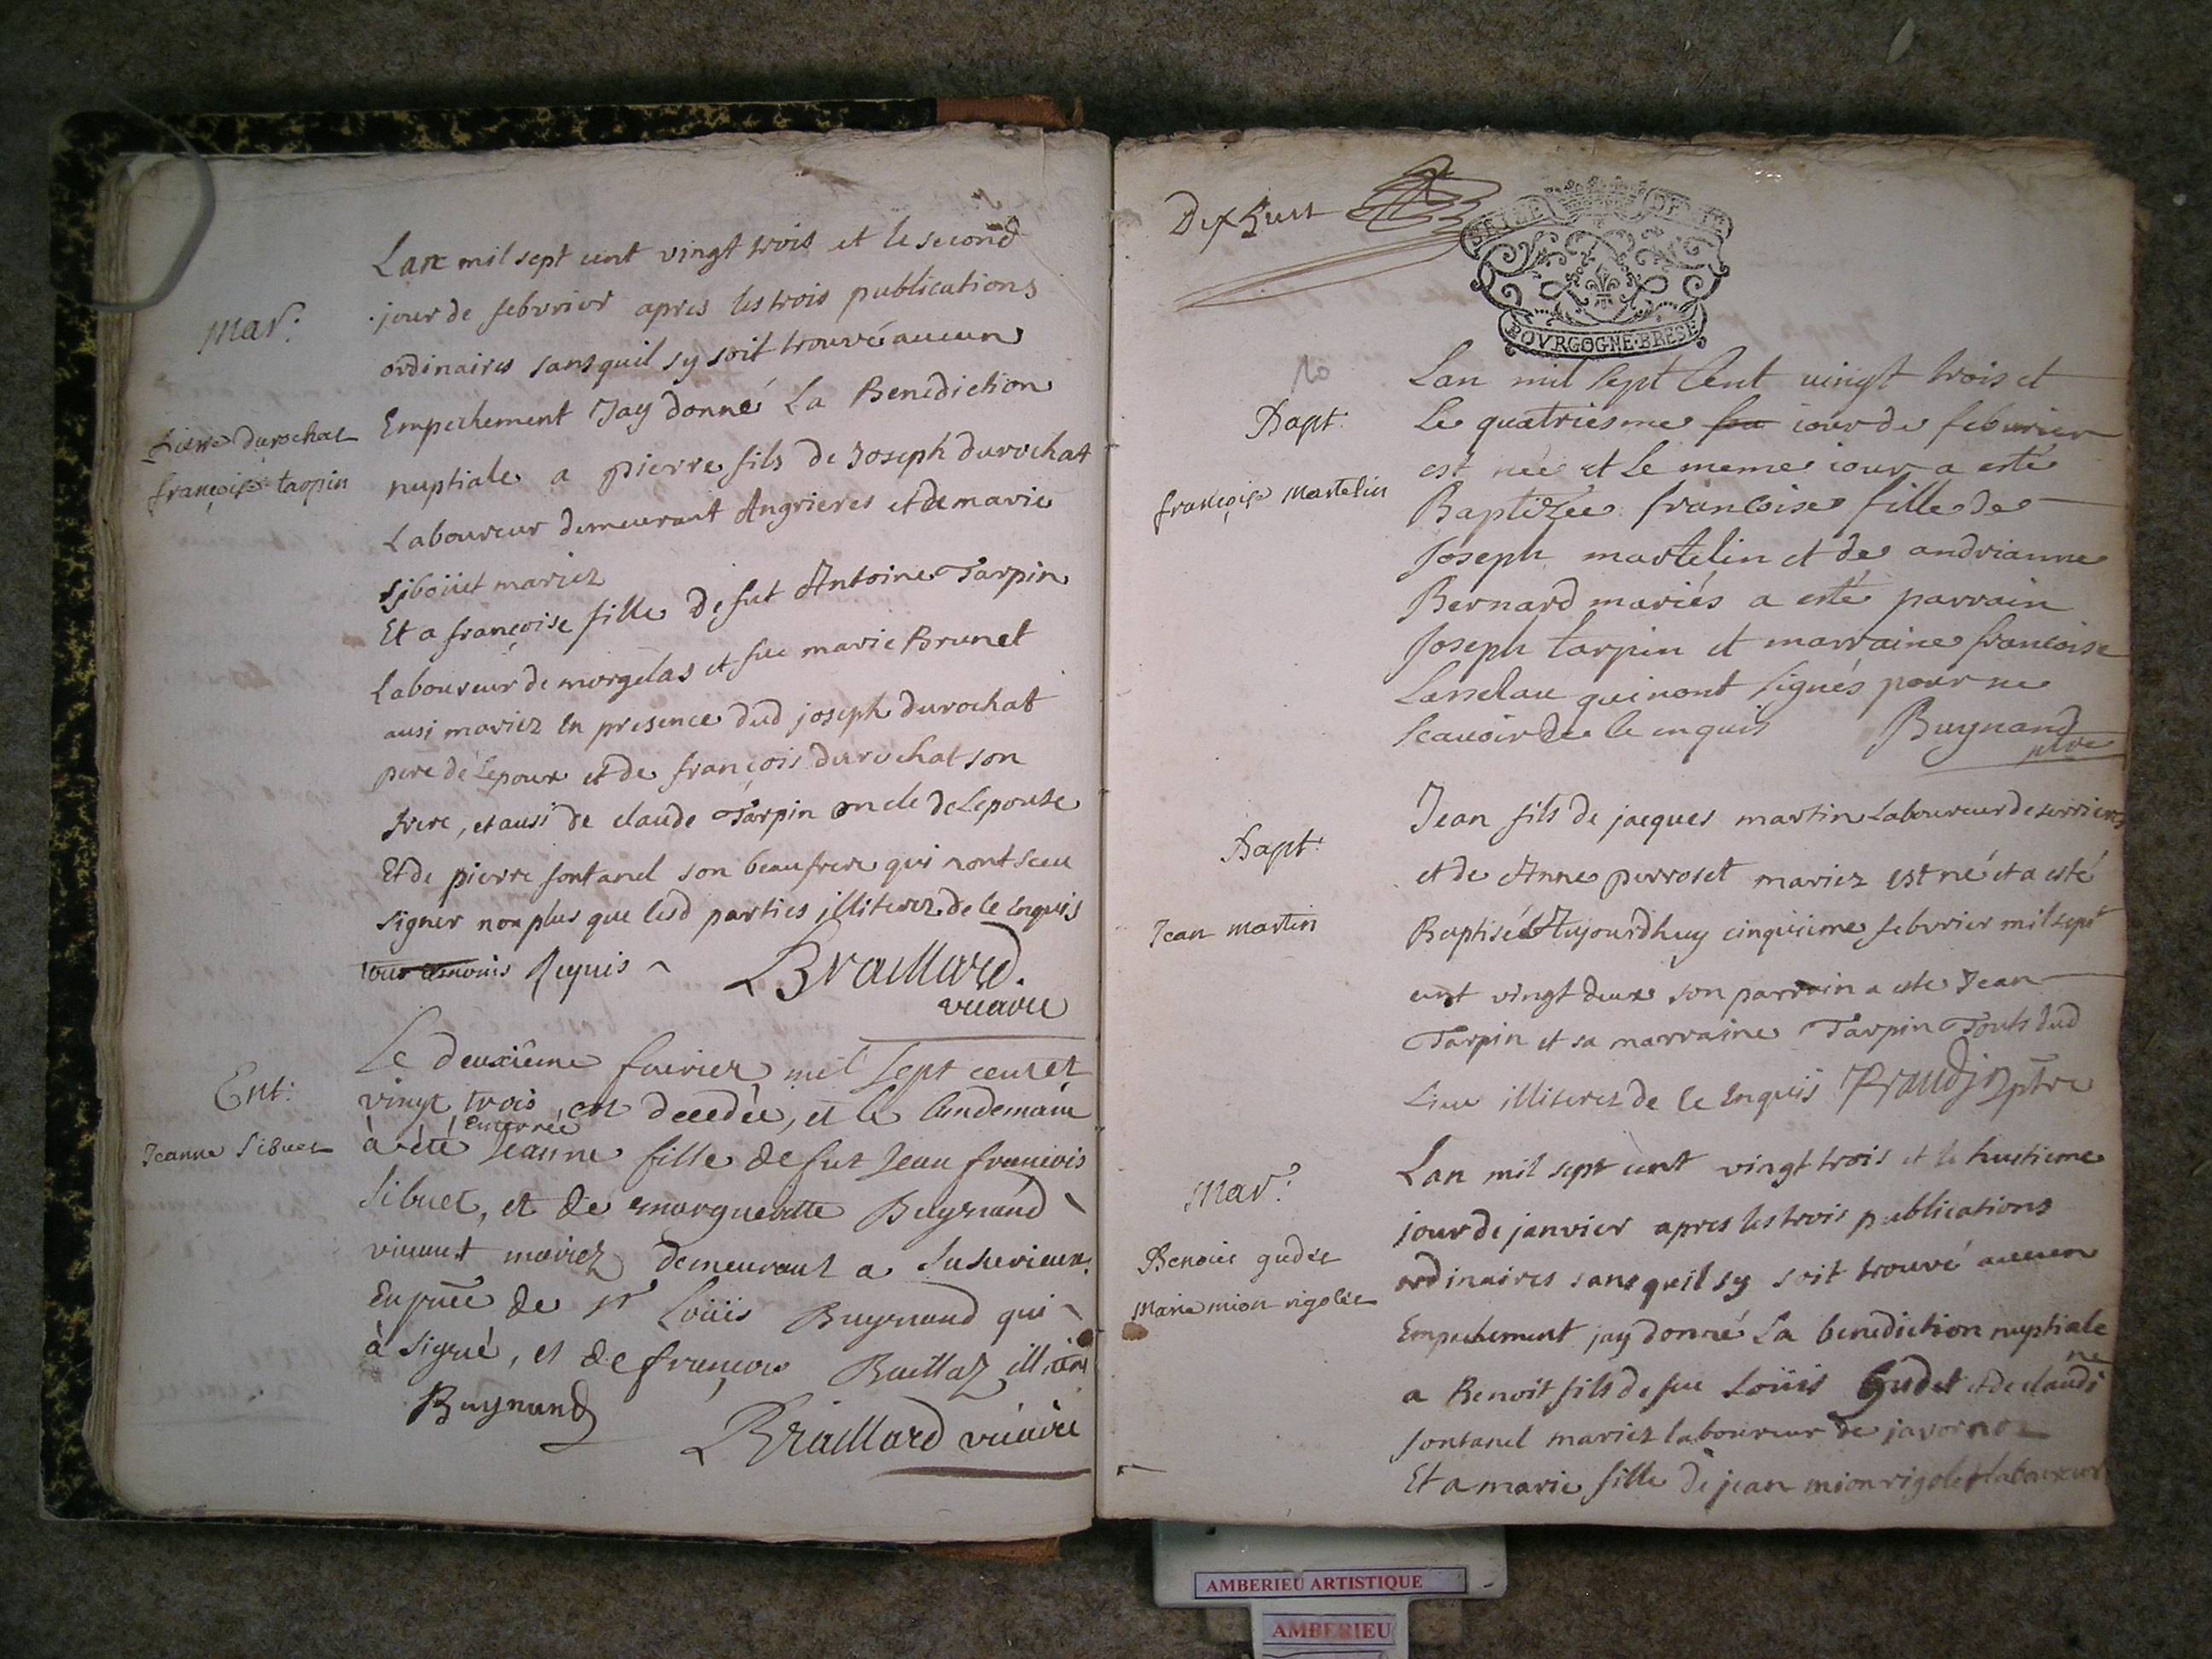 Mar:
Pierre durochat
françoise tarpin
Lan mil sept cent vingt trois et le second
jour de febvrier apres les trois publications
ordinaires sans quil sy soit trouvé aucun
Empechement Jay donné La Benediction
nuptiale a pierre fils de Joseph durochat
Laboureur demeurant Angrieres et de marie
sibouet mariez
Et a françoise fille de fut Antoine Tarpin
Laboureur de morgelas et fue marie Brunet
ausi mariez en presence dud joseph durochat
pere de Lepoux et de françois durochat son
frere, et ausi de claude Tarpin oncle de Lepouse
Et de pierre fontanel son beaufrere qui nont sceu
signer non plus que lesd parties illiterez de ce enquis
Requis Braillard.
vicaire
Ent:
Jeanne Sibuet
Le deuxiême fuvrier mil sept cent et
vingt trois est decedée, et le lendemain
à été enterrée Jeanne fille de fut Jean françois
Sibuet, et de marguerite Buynand
vivant mariez demeurant a Susurieux.
En pñce de Sr Loüis Buynand qui
à signé, et de françois Baillaz
Buynand
Braillard vicaire
Dix huit
SEIZE DE
BOVRGOGNE·BRESE
10
Bapt:
françoise Martelin
Lan mil sept Cent vingt trois et
Le quatriesme jour de feburier
est née et Le meme iour a esté
Baptizée francoise fille de
Joseph martelin et de andrianne
Bernard mariés a esté parrain
Joseph tarpin et marraine francoise
qui nont signés pour ne
scauoir de ce enquis Buynand
ptre
Bapt:
Jean martin
Jean fils de jacques martin Laboureur de serrieres
et de Anne perroset mariez est né et a esté
Baptisé Aujourdhuy cinquieme febvrier mil sept
cent vingt deux son parrain a este Jean
Tarpin et sa marraine Tarpin Touts dud
Lieu illiterez de ce Enquis ptre
Mar:
Benoit gudet
Marie mion rigolet
Lan mil sept cent vingt trois et le huitieme
jour de janvier apres les trois publications
ordinaires sans quil sy soit trouvé aucun
Empechement jay donné La benediction nuptiale
a Benoit fils de fue Loüis Gudet et de claudine
fontanel mariez laboureur de javornoz
Et a marie fille de jean mion rigolet laboureur
AMBERIEU ARTISTIQUE
AMBERIEU